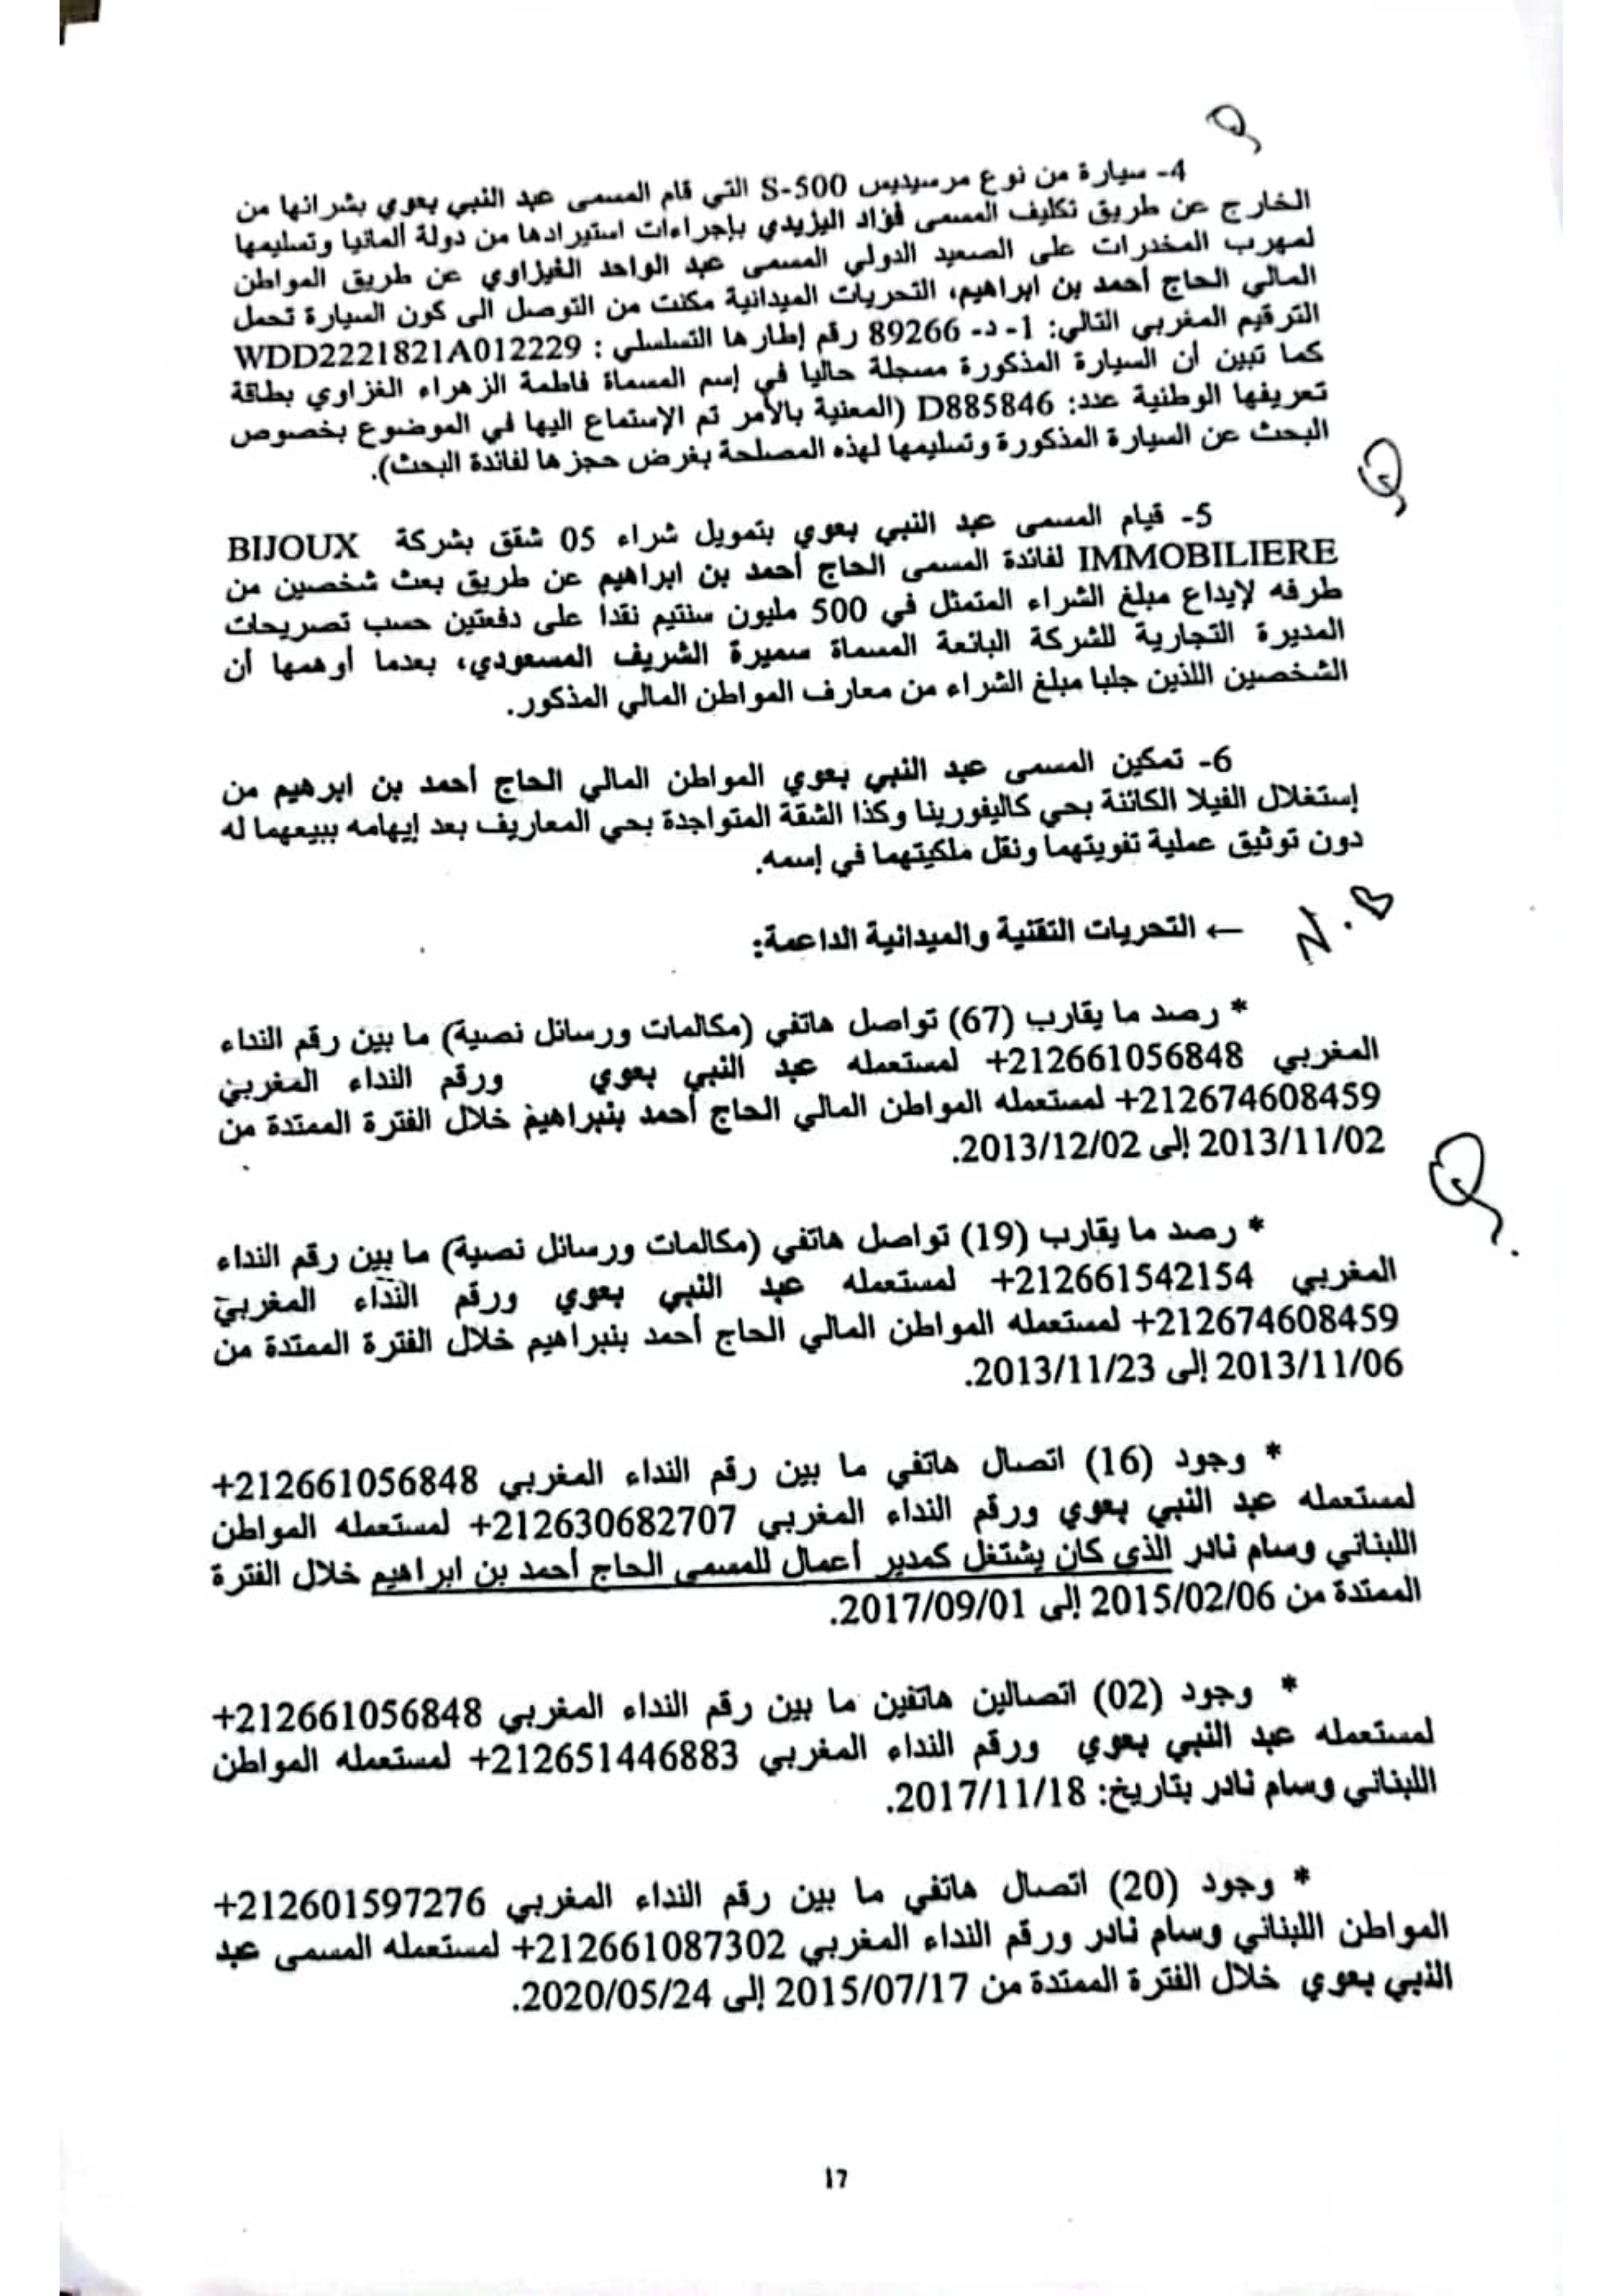 4- سيارة من نوع مرسيديس S-500 التي قام المسمى عبد النبي بعوي بشرائها من
الخارج عن طريق تكليف المسمى فؤاد اليزيدي بإجراءات استيرادها من دولة ألمانيا وتسليمها
لمهرب المخدرات على الصعيد الدولي المسمى عبد الواحد الغيزاوي عن طريق المواطن
المالي الحاج أحمد بن ابراهيم، التحريات الميدانية مكنت من التوصل الى كون السيارة تحمل
الترقيم المغربي التالي: 1- د- 89266 رقم إطارها التسلسلي : WDD2221821A012229
كما تبين أن السيارة المذكورة مسجلة حاليا في إسم المسماة فاطمة الزهراء الغزاوي بطاقة
تعريفها الوطنية عدد: D885846 (المعنية بالأمر تم الإستماع اليها في الموضوع بخصوص
البحث عن السيارة المذكورة وتسليمها لهذه المصلحة بغرض حجزها لفائدة البحث).
5- قيام المسمى عبد النبي بعوي بتمويل شراء 05 شقق بشركة BIJOUX
IMMOBILIERE لفائدة المسمى الحاج أحمد بن ابراهيم عن طريق بعث شخصين من
طرفه لإيداع مبلغ الشراء المتمثل في 500 مليون سنتيم نقدا على دفعتين حسب تصريحات
المديرة التجارية للشركة البائعة المسماة سميرة الشريف المسعودي، بعدما أوهمها أن
الشخصين اللذين جلبا مبلغ الشراء من معارف المواطن المالي المذكور.
6- تمكين المسمى عبد النبي بعوي المواطن المالي الحاج أحمد بن ابرهيم من
إستغلال الفيلا الكائنة بحي كاليفورينا وكذا الشقة المتواجدة بحي المعاريف بعد إيهامه ببيعهما له
دون توثيق عملية تفويتهما ونقل ملكيتهما في إسمه.
N.B
← التحريات التقنية والميدانية الداعمة:
* رصد ما يقارب (67) تواصل هاتفي (مكالمات ورسائل نصية) ما بين رقم النداء
المغربي 212661056848+ لمستعمله عبد النبي بعوي ورقم النداء المغربي
212674608459+ لمستعمله المواطن المالي الحاج أحمد بنبراهيم خلال الفترة الممتدة من
2013/11/02 إلى 2013/12/02.
* رصد ما يقارب (19) تواصل هاتفي (مكالمات ورسائل نصية) ما بين رقم النداء
المغربي 212661542154+ لمستعمله عبد النبي بعوي ورقم النداء المغربي
212674608459+ لمستعمله المواطن المالي الحاج أحمد بنبراهيم خلال الفترة الممتدة من
2013/11/06 إلى 2013/11/23.
* وجود (16) اتصال هاتفي ما بين رقم النداء المغربي 212661056848+
لمستعمله عبد النبي بعوي ورقم النداء المغربي 212630682707+ لمستعمله المواطن
اللبناني وسام نادر الذي كان يشتغل كمدير أعمال للمسمى الحاج أحمد بن ابراهيم خلال الفترة
الممتدة من 2015/02/06 إلى 2017/09/01.
* وجود (02) اتصالين هاتفين ما بين رقم النداء المغربي 212661056848+
لمستعمله عبد النبي بعوي ورقم النداء المغربي 212651446883+ لمستعمله المواطن
اللبناني وسام نادر بتاريخ: 2017/11/18.
* وجود (20) اتصال هاتفي ما بين رقم النداء المغربي 212601597276+
المواطن اللبناني وسام نادر ورقم النداء المغربي 212661087302+ لمستعمله المسمى عبد
النبي بعوي خلال الفترة الممتدة من 2015/07/17 إلى 2020/05/24.
17